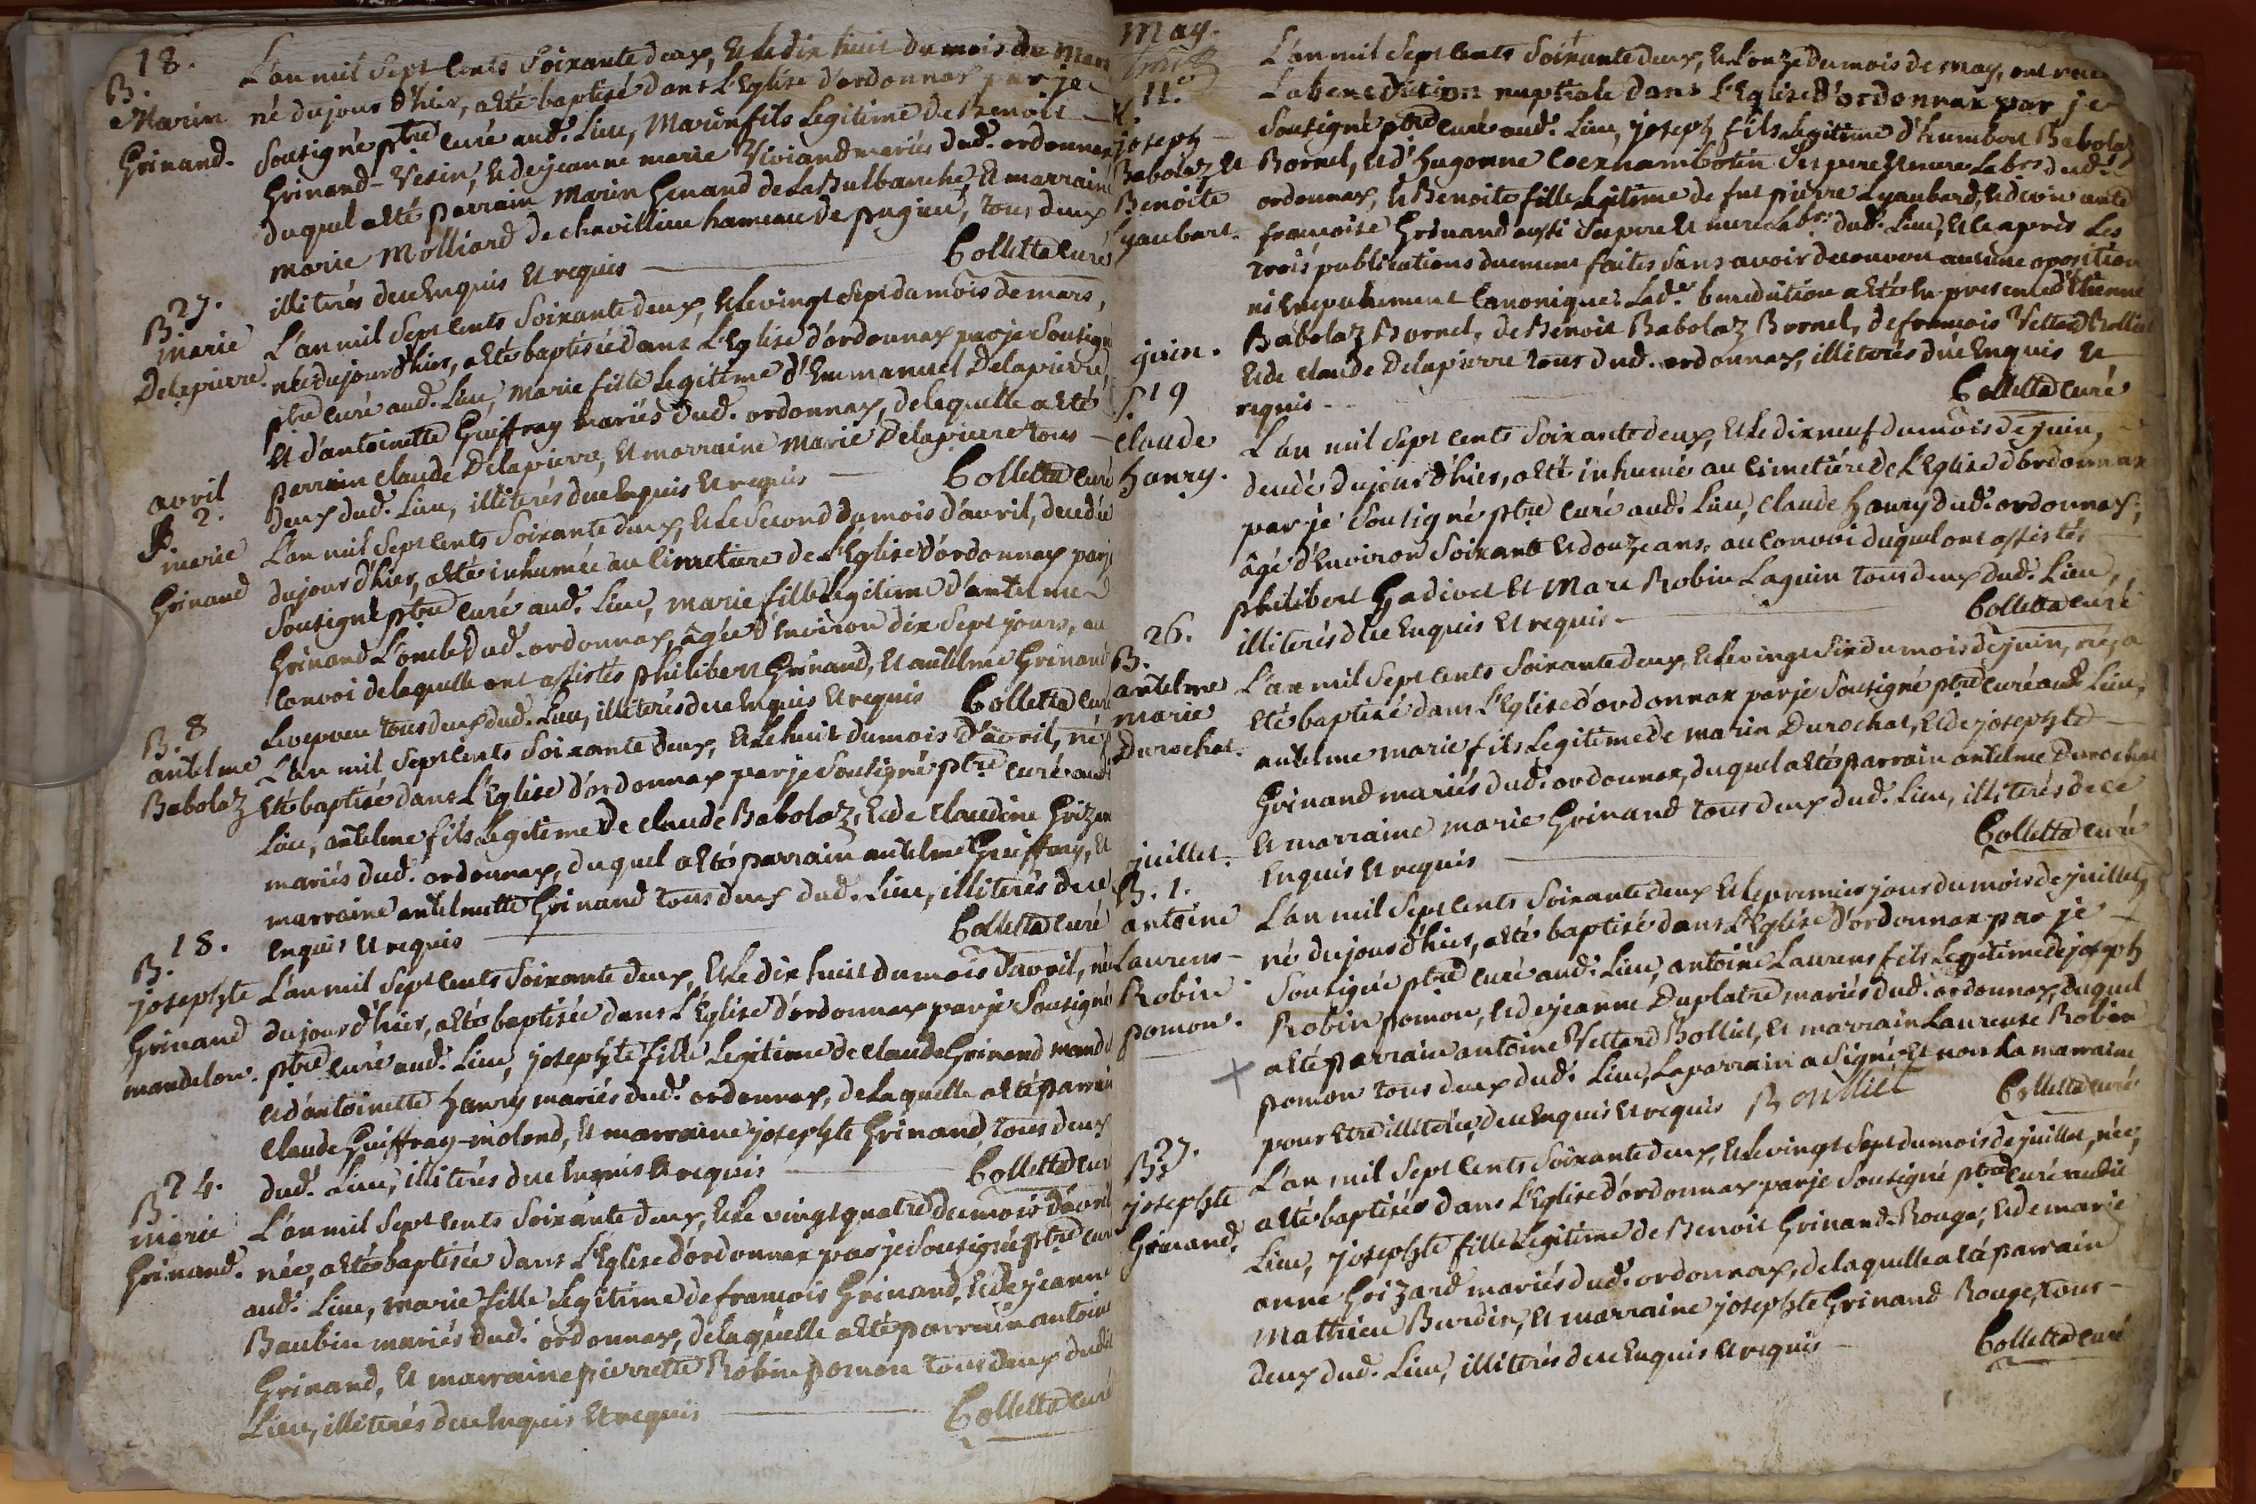 18.
B.
Marin
Grinand.
L'an mil sept cents soixante deux, et le dix huit du mois de mars
né du jour d'hier, a été baptisé dans l'Eglise d'ordonnax par je
sousigné ptre curé aud. Lieu, Marin fils legitime de Benoit
Grinand-Vesin, et de jeanne marie Viviand mariés dud. ordonnax
duquel a été parrain Marin Genand de La Bulbanche, et marraine
marie Molliard de chavillieu hameau de pugieu, tous deux
illiterés de ce enquis et requis Colletta curé
27.
B.
marie
Delapierre.
L'an mil sept cents soixante deux, et le vingt sept du mois de mars,
née du jour d'hier, a été baptisée dans L'Eglise d'ordonnax par je sousigné
ptre curé aud. Lieu, marie fille legitime d'Emmanuel Delapierre
et d'antoinette Guiffray mariés dud. ordonnax, de laquelle a été
perrain claude Delapierre, et marraine marie Delapierre tous
deux dud. Lieu, illiterés de ce enquis et requis Colletta curé
avril
S. 2.
marie
Grinand
L'an mil sept cents soixante deux, et le second du mois d'avril, decedée
du jour d'hier, a été inhumée au Cimetiere de L'Eglise d'ordonnax par je
sousigné ptre curé aud. Lieu, marie fille legitime d'antelme
Grinand L'oncle dud. ordonnax, âgée d'environ dix sept jours, au
convoi de laquelle ont assistés philibert Grinand, et antelme Grinand
tous deux dud. Lieu, illiterés de ce enquis et requis Colletta curé
B. 8
antelme
Babolaz
L'an mil sept cents soixante deux, et le huit du mois d'avril, né
été baptisé dans L'Eglise d'ordonnax par je sousigné ptre curé aud.
Lieu, antelme fils legitime de claude Babolaz, et de claudine Grizard
mariés dud. ordonnax, duquel a été parrain antelme Guiffray, et
marraine antelmette Grinand tous deux dud. Lieu, illiterés de ce
enquis et requis Colletta curé
18.
B.
josephte
Grinand
mandelon.
L'an mil sept cents soixante deux, et le dix huit du mois d'avril, née
du jour d'hier, a été baptisée dans L'Eglise d'ordonnax par je sousigné
ptre curé aud. Lieu, josephte fille legitime de claude Grinand mandelon
et d'antoinette hanry mariés dud. ordonnax, de laquelle a été parrain
claude Guiffray-molond, et marraine josephte Grinand, tous deux
dud. Lieu, illiterés de ce enquis et requis Colletta curé
24.
B.
marie
Grinand.
L'an mil sept cents soixante deux, et le vingt quatre du mois d'avril
née, a été baptisée dans L'Eglise d'ordonnax par je sousigné ptre curé
aud. Lieu, marie fille legitime de francois Grinand, et de jeanne
Baubin mariés dud. ordonnax, de laquelle a été parrain antoine
Grinand, et marraine pierrette Robin pomon tous deux dudit
Lieu, illiterés de ce enquis et requis Colletta curé
May.
11.
joseph
Babolaz et
Benoite
Lyaubert.
L'an mil sept cents soixante deux, et l'onze du mois de may, ont recu
La benediction nuptiale dans L'Eglise d'ordonnax par je
sousigné ptre curé aud. Lieu, joseph fils legitime d'humbert Babolaz
Bornel, et d'hugonne ses pere et mere Labrs dud.
ordonnax, et Benoite fille legitime de fut pierre Lyaubard, et de
francoise Grinand aussi ses pere et mere Labrs dud. Lieu, et ce après Les
trois publications duement faites sans avoir decouvert aucune oposition
ni empechement Canonique: Lad. benediction a été en presence d'Etienne
Babolaz Bornel, de Benoit Babolaz Bornel, de francois Vettard Bolliet
et de claude Delapierre tous dud. ordonnax, illiterés de ce enquis et
requis Colletta curé
juin.
S. 19
claude
hanry.
L'an mil sept cents soixante deux, et le dix neuf du mois de juin,
decedé du jour d'hier, a été inhumé au cimetiére de L'Eglise d'ordonnax
par je sousigné ptre curé aud. Lieu, claude hanry dud. ordonnax,
âgé d'environ soixante et douze ans, au convoi duquel ont assistés
philibert Gadivet et Marc Robin Laquin tous deux dud. Lieu,
illiterés de ce enquis et requis Colletta curé
26.
B.
antelme
marie
Durochat.
L'an mil sept cents soixante deux, et le vingt six du mois de juin, né, a
été baptisé dans L'Eglise d'ordonnax par je sousigné ptre curé aud. Lieu,
antelme marie fils legitime de marin Durochat, et de josephte
Grinand mariés dud. ordonnax, duquel a été parrain antelme Durochat
et marraine marie Grinand tous deux dud. Lieu, illiterés de ce
enquis et requis Colletta curé
juillet.
B. 1.
antoine
Laurens
Robin
pomon.
L'an mil sept cents soixante deux et le premier jour du mois de juillet,
né du jour d'hier, a été baptisé dans L'Eglise d'ordonnax par je
sousigné ptre curé aud. Lieu, antoine Laurens fils legitime de joseph
Robin pomon, et de jeanne Duplatre mariés dud. ordonnax, duquel
a été parrain antoine Vettard Bolliet, et marrain Laurense Robin
pomon tous deux dud. Lieu, Le parrain a signé et non La marraine
pour etre illiterée, de ce enquis et requis Bolliet Colletta curé
27.
B.
josephte
Grinand.
L'an mil sept cents soixante deux, et le vingt sept du mois de juillet, née,
a été baptisée dans L'Eglise d'ordonnax par je sousigné ptre curé audit
Lieu, josephte fille legitime de Benoit Grinand-Rouge, et de marie
anne Grizard mariés dud. ordonnax, de laquelle a été parrain
Mathieu Burdin, et marraine josephte Grinand Rouge, tous
deux dud. Lieu, illiterés de ce enquis et requis Colletta curé